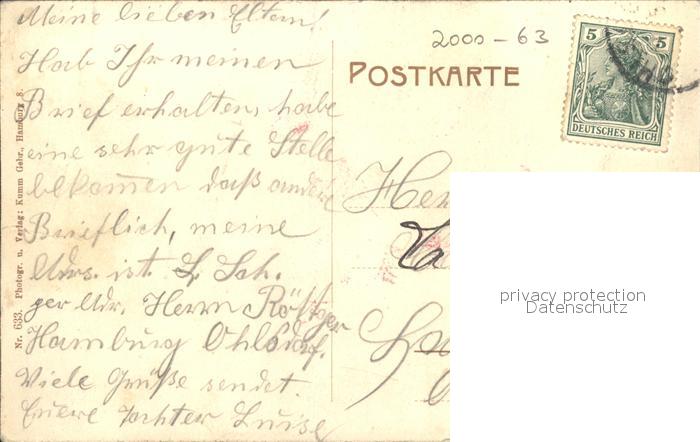 Meine lieben Eltern!
Hab Ihr meinen
Brief erhalten, habe
eine sehr gute Stelle
bekommen daß andere
Brieflich, meine
Adrs. ist. L. Sch.
per Adr. Herrn Röttger
Hamburg Ohlsdorf.
Viele Grüße sendet.
Euere Tochter Luise
Nr. 633. Photogr. u. Verlag: Kumm Gebr., Hamburg 8.
2000 - 63
POSTKARTE
5 5
DEUTSCHES REICH
privacy protection
Datenschutz